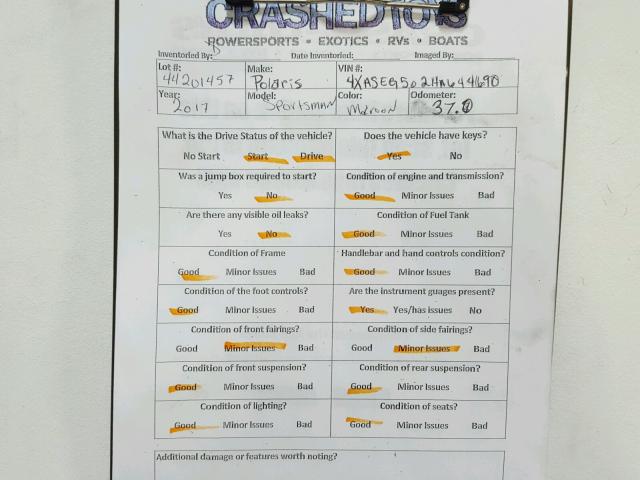 CRASHEDTOYS
POWERSPORTS • EXOTICS • RVs • BOATS
Inventoried By: Date Inventoried: Imaged By:
Lot #: 44201457 Make: Polaris VIN #:
Year: 2017 Model: Sportsman Color: Maroon Odometer: 37.0
What is the Drive Status of the vehicle? Does the vehicle have keys?
No Start Start Drive Yes No
Was a jump box required to start? Condition of engine and transmission?
Yes No Good Minor Issues Bad
Are there any visible oil leaks? Condition of Fuel Tank
Yes No Good Minor Issues Bad
Condition of Frame Handlebar and hand controls condition?
Good Minor Issues Bad Good Minor Issues Bad
Condition of the foot controls? Are the instrument guages present?
Good Minor Issues Bad Yes Yes/has issues No
Condition of front fairings? Condition of side fairings?
Good Minor Issues Bad Good Minor Issues Bad
Condition of front suspension? Condition of rear suspension?
Good Minor Issues Bad Good Minor Issues Bad
Condition of lighting? Condition of seats?
Good Minor Issues Bad Good Minor Issues Bad
Additional damage or features worth noting?